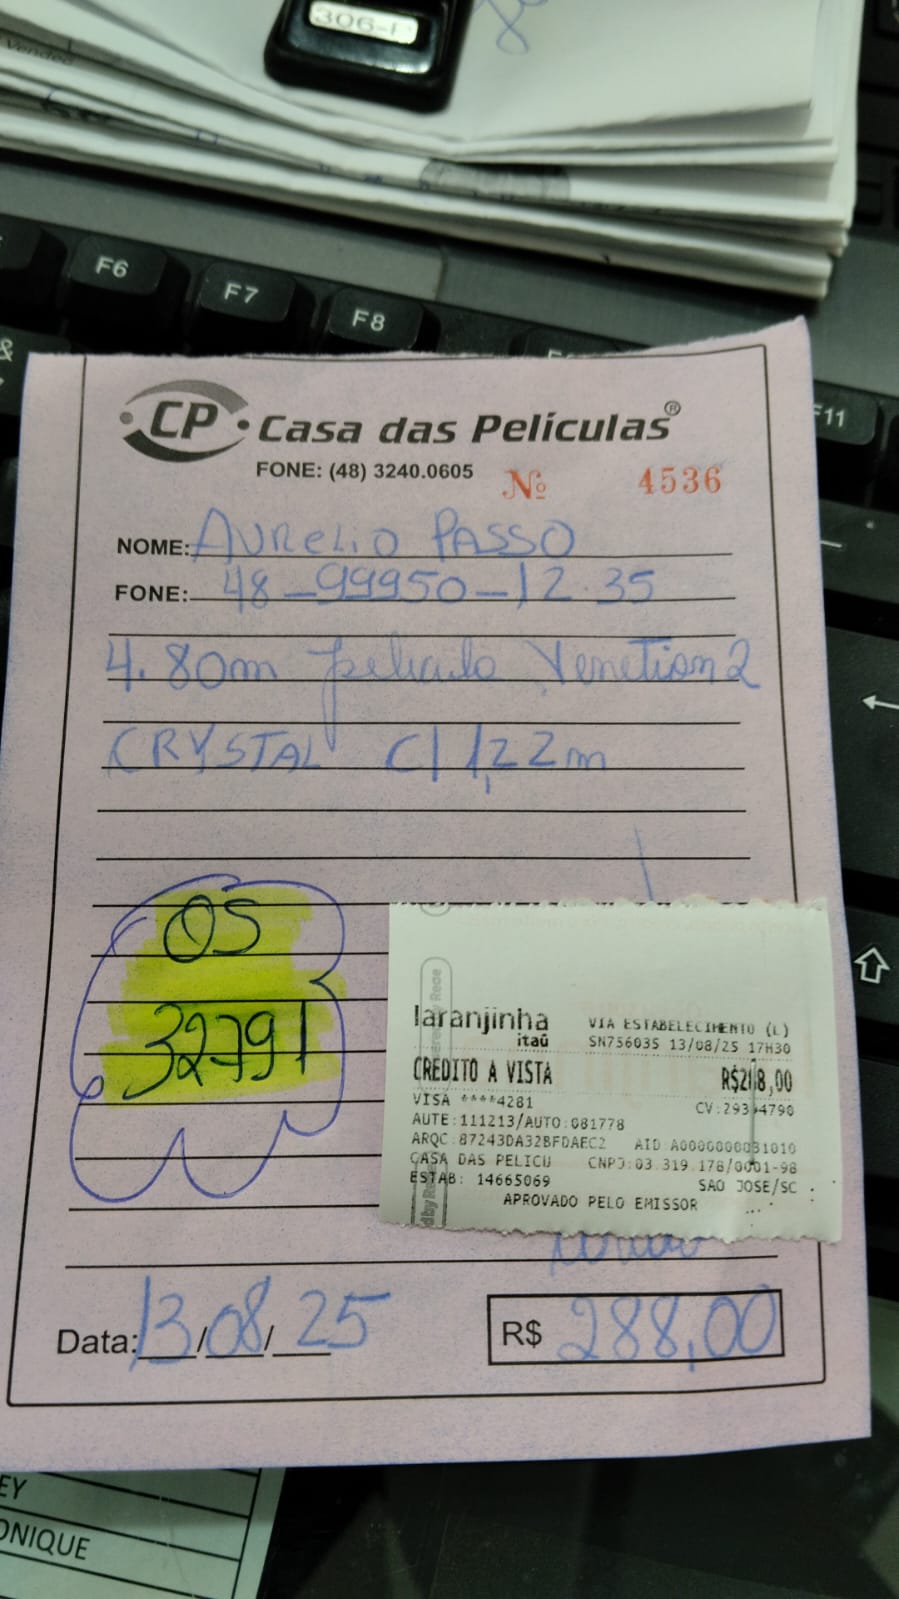 306-
F6
F7
F8
F11
&
CP Casa das Películas®
FONE: (48) 3240.0605 Nº 4536
NOME: AURELIO PASSO
FONE: 48-99950-12.35
4.80m pelicula Venetian 2
CRYSTAL C/ 1,22m
OS
32791
laranjinha
itaú
VIA ESTABELECIMENTO (L)
SN756035 13/08/25 17H30
CREDITO A VISTA R$288,00
VISA ****4281
AUTE:111213/AUTO:081778
ARQC:87243DA32BFDAEC2 AID:A0000000031010
CASA DAS PELICU CNPJ:03.319.178/0001-98
ESTAB: 14665069 SAO JOSE/SC
APROVADO PELO EMISSOR
Data: 13/08/25 R$ 288,00
EY
ONIQUE